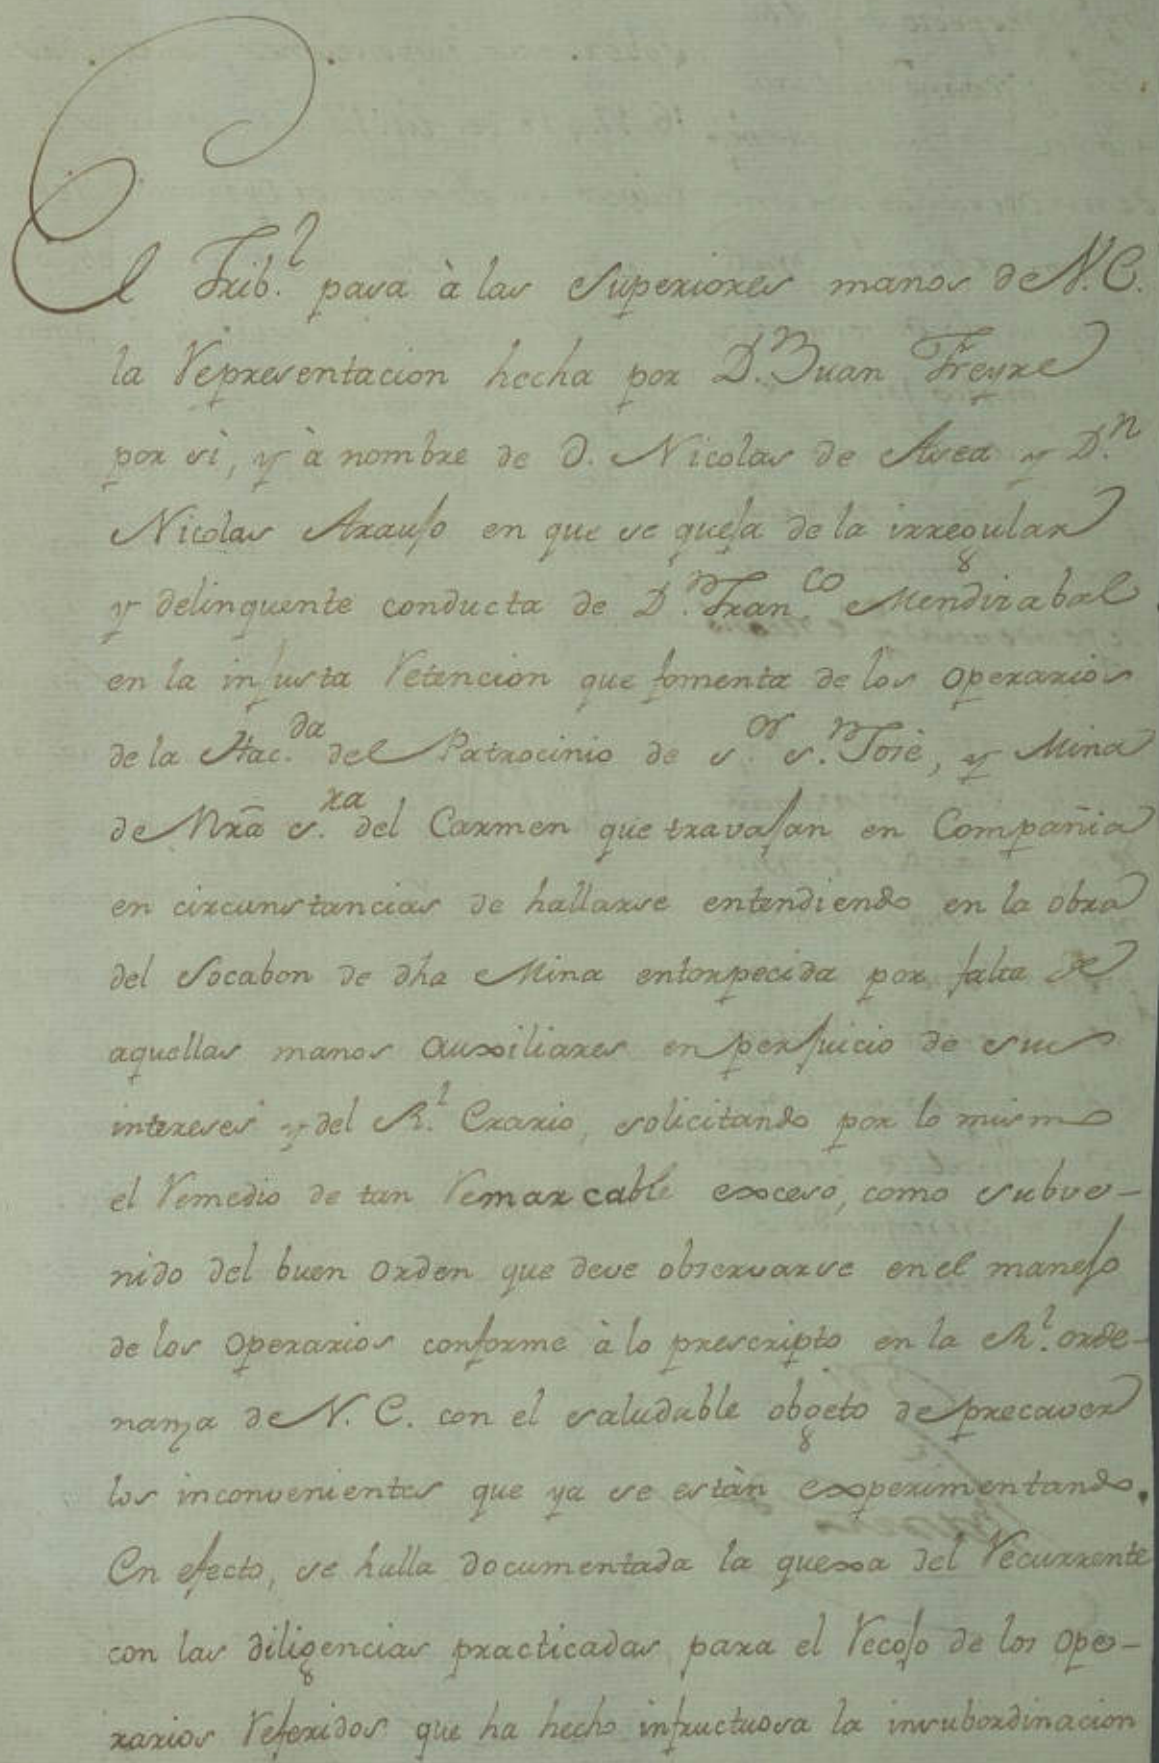 El Trib.l pasa à las Superiores manos de V.E.
la Representacion hecha por D.n Juan Freyre
por sì, y à nombre de D. Nicolas de Asea y D.n
Nicolas Araujo en que se queja de la irregular
y delinquente conducta de D.n Fran.co Mendizabal
en la injusta Retencion que fomenta de los Operarios
de la Hac.da del Patrocinio de S.or S.n José, y Mina
de Nrã S.ra del Carmen que travajan en Compañia
en circunstancias de hallarse entendiendo en la obra
del Socabon de dha Mina entorpecida por falta de
aquellas manos auxiliares en perjuicio de sus
intereses y del R.l Erario, solicitando por lo mismo
el Remedio de tan Remarcable exceso, como subver-
nido del buen orden que deve observarse en el manejo
de los Operarios conforme à lo prescripto en la R.l orde-
nanza de V.E. con el saludable objeto de precaver
los inconvenientes que ya se estàn experimentando.
En efecto, se halla documentada la quexa del Recurrente
con las diligencias practicadas para el Recojo de los ope-
rarios Referidos que ha hecho infructuosa la insubordinacion